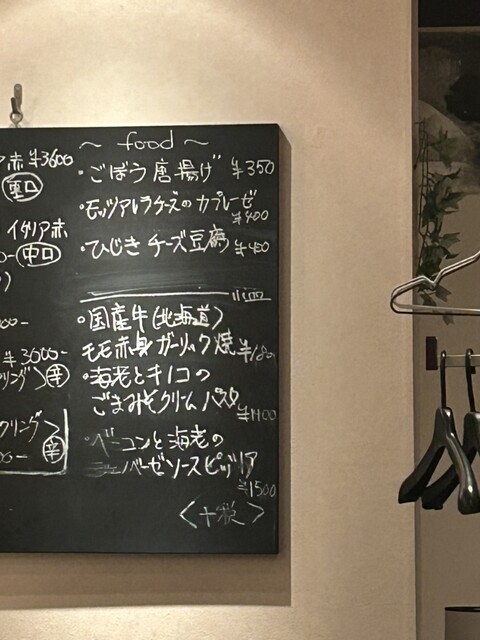 〜 food 〜
・ごぼう唐揚げ ¥350
・モッツアレラチーズのカプレーゼ
¥400
・ひじきチーズ豆腐 ¥450
・国産牛(北海道)
モモ赤身ガーリック焼
・海老とキノコの
ごまみそクリームパスタ
¥1400
・ベーコンと海老の
バーゼソースピッツァ
¥1500
<十税>
赤 ¥3600
重口
イタリア赤
中口
¥3000-
リング>辛
クリング>
辛